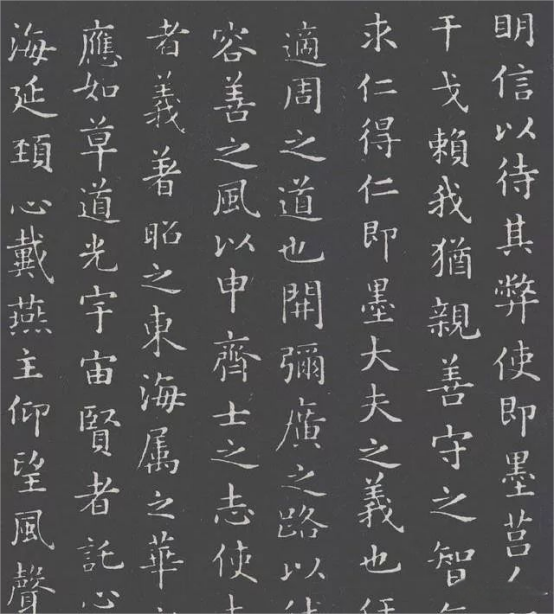 明信以待其弊使即墨莒
干戈賴我猶親善守之智
求仁得仁即墨大夫之義也
適周之道也開彌廣之路以
容善之風以申齊士之志使
者義著昭之東海属之華
應如草道光宇宙賢者託心
海延頸心戴燕主仰望風聲